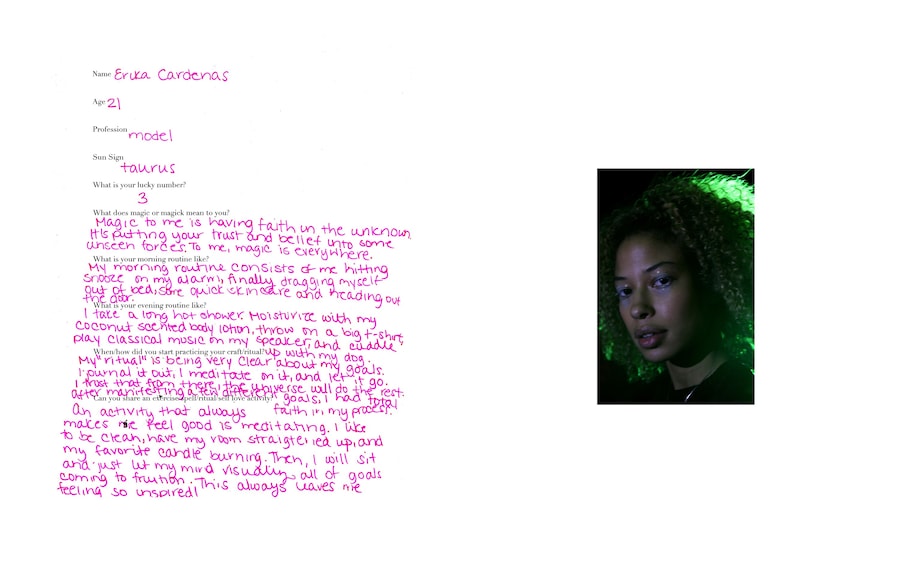 Name Erika Cardenas
Age 21
Profession model
Sun Sign taurus
What is your lucky number?
3
What does magic or magick mean to you?
Magic to me is having faith in the unknown.
It's putting your trust and belief into some
unseen forces. To me, magic is everywhere.
What is your morning routine like?
My morning routine consists of me hitting
snooze on my alarm, finally dragging myself
out of bed, some quick skincare and heading out
the door.
What is your evening routine like?
I take a long hot shower. Moisturize with my
coconut scented body lotion, throw on a big t-shirt,
play classical music on my speaker, and cuddle
When/how did you start practicing your craft/ritual? up with my dog.
My "ritual" is being very clear about my goals.
I journal it out, I meditate on it, and let it go.
I trust that from there, the universe will do the rest.
after manifesting a few different goals, I had total
Can you share an exercise/spell/ritual/self love activity?
faith in my process.
An activity that always
makes me feel good is meditating. I like
to be clean, have my room straigtened up, and
my favorite candle burning. Then, I will sit
and just let my mind visualize all of goals
coming to fruition. This always leaves me
feeling so inspired!